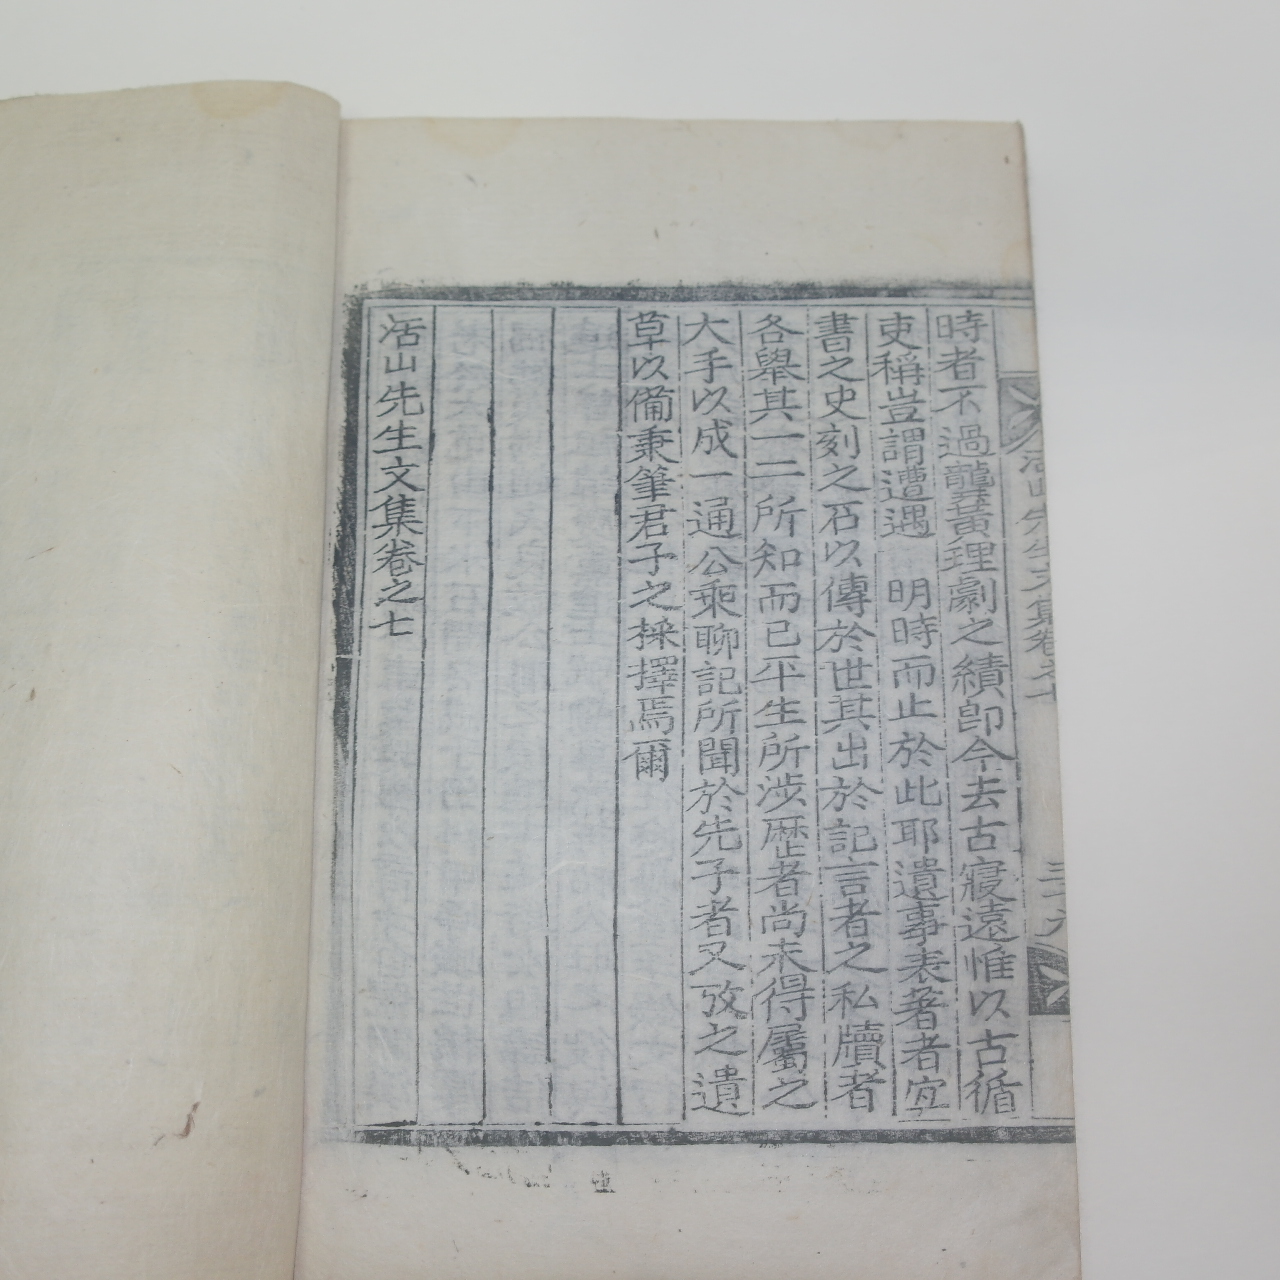 活山先生文集卷之七
三十八
時者不過龔黃理劇之績卽今去古寢遠惟以古循
吏稱豈謂遭遇 明時而止於此耶遺事表著者宜
書之史刻之石以傳於世其出於記言者之私牘者
各舉其一二所知而已平生所涉歷者尚未得屬之
大手以成一通公乘聊記所聞於先子者又攷之遺
草以備秉筆君子之採擇焉爾
活山先生文集卷之七